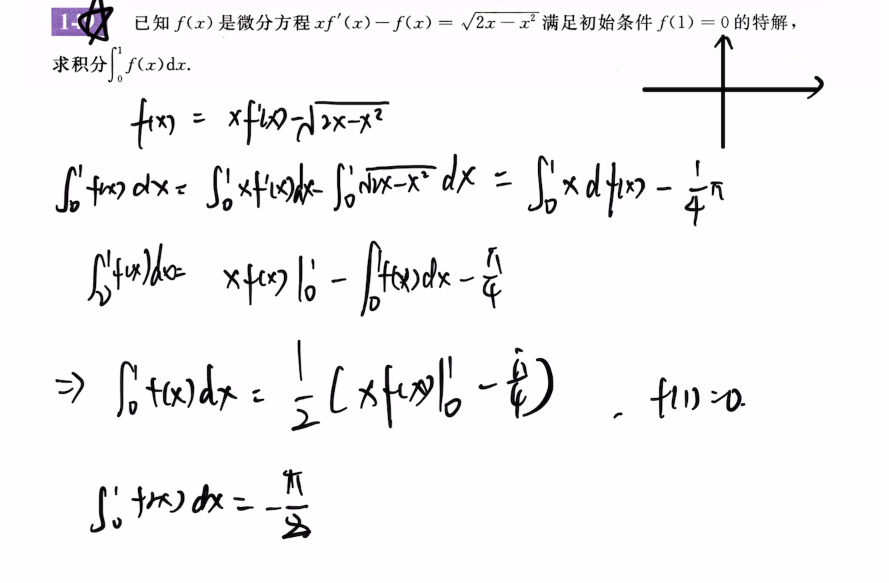 已知 f(x) 是微分方程 xf′(x)－f(x)＝√(2x－x²) 满足初始条件 f(1)＝0 的特解，
求积分∫₀¹ f(x)dx.
f(x) = xf'(x)-√(2x-x²)
∫₀¹ f(x) dx = ∫₀¹ xf'(x)dx - ∫₀¹ √(2x-x²) dx = ∫₀¹ x d f(x) - 1/4 π
∫₀¹ f(x)dx = xf(x)|₀¹ - ∫₀¹ f(x)dx - π/4
⇒ ∫₀¹ f(x)dx = 1/2 (xf(x)|₀¹ - π/4) . f(1)=0.
∫₀¹ f(x) dx = -π/8